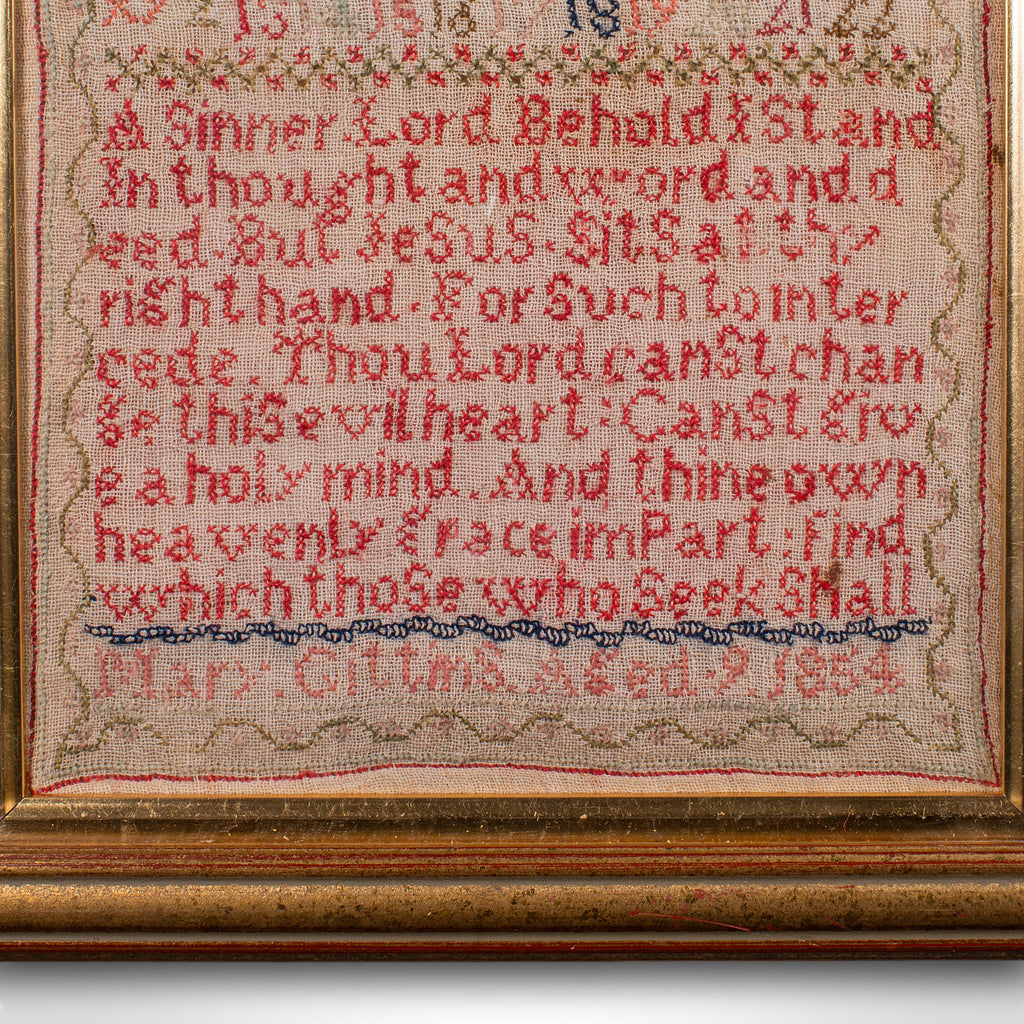 13 15 18 18 19 21 22
A Sinner Lord Behold I Stand
In thought and word and d
eed. But Jesus. Sits at thy
right hand. For Such to inter
cede. Thou Lord canst chan
ge this evil heart: Canst giv
e a holy mind. And thine own
heavenly grace impart: find
which those who Seek Shall
Mary: Gittins. Aged. 9. 1854